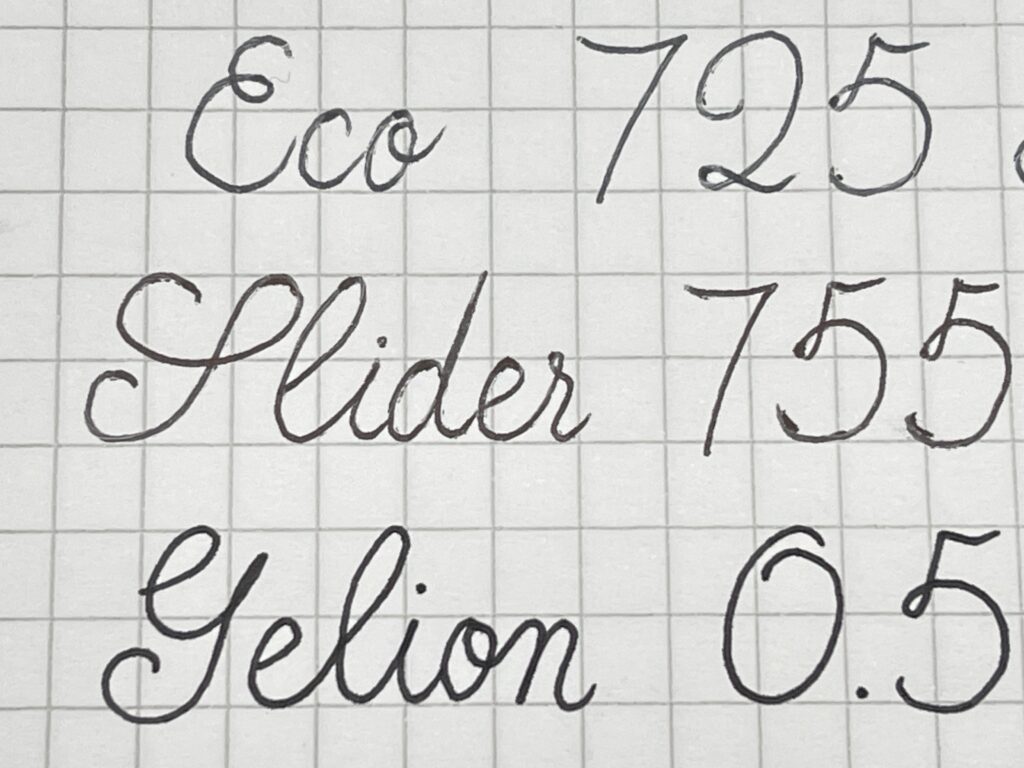 Eco 725
Slider 755
Gelion 0.5